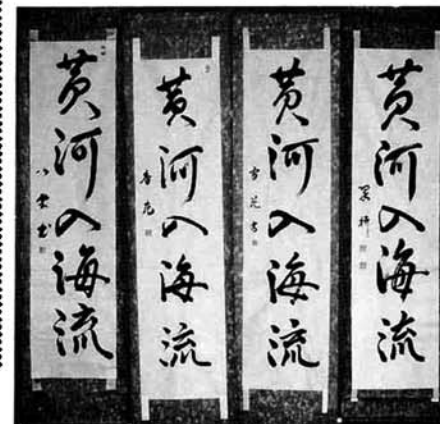 黄河入海流
黄河入海流
黄河入海流
黄河入海流